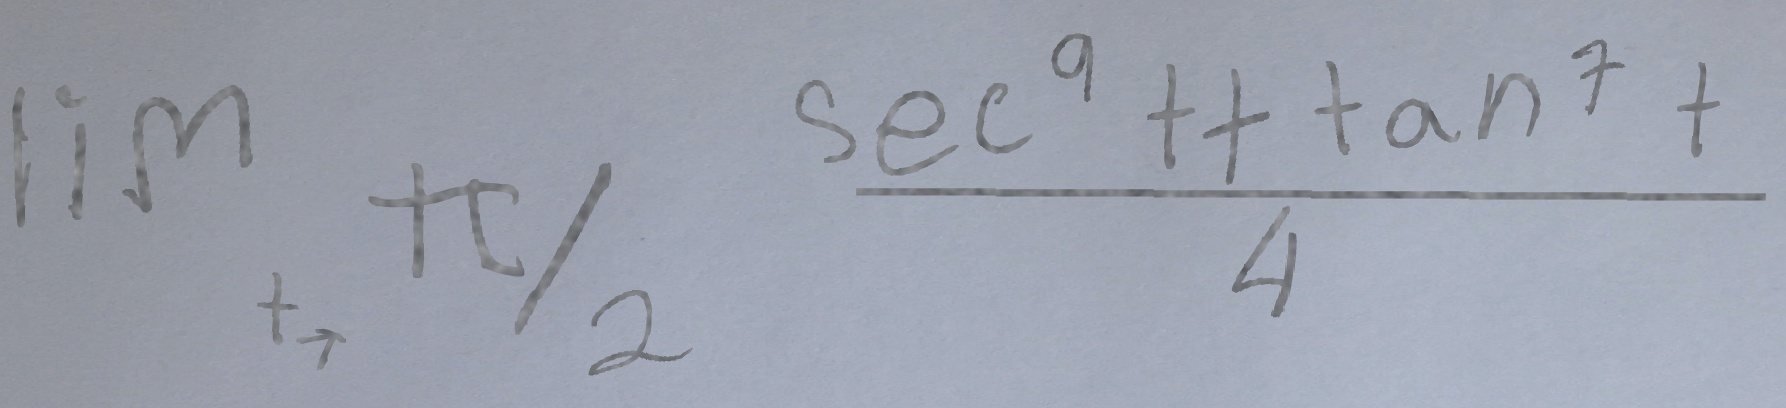 lim t→ π/2 sec⁹ t + tan⁷ t
4